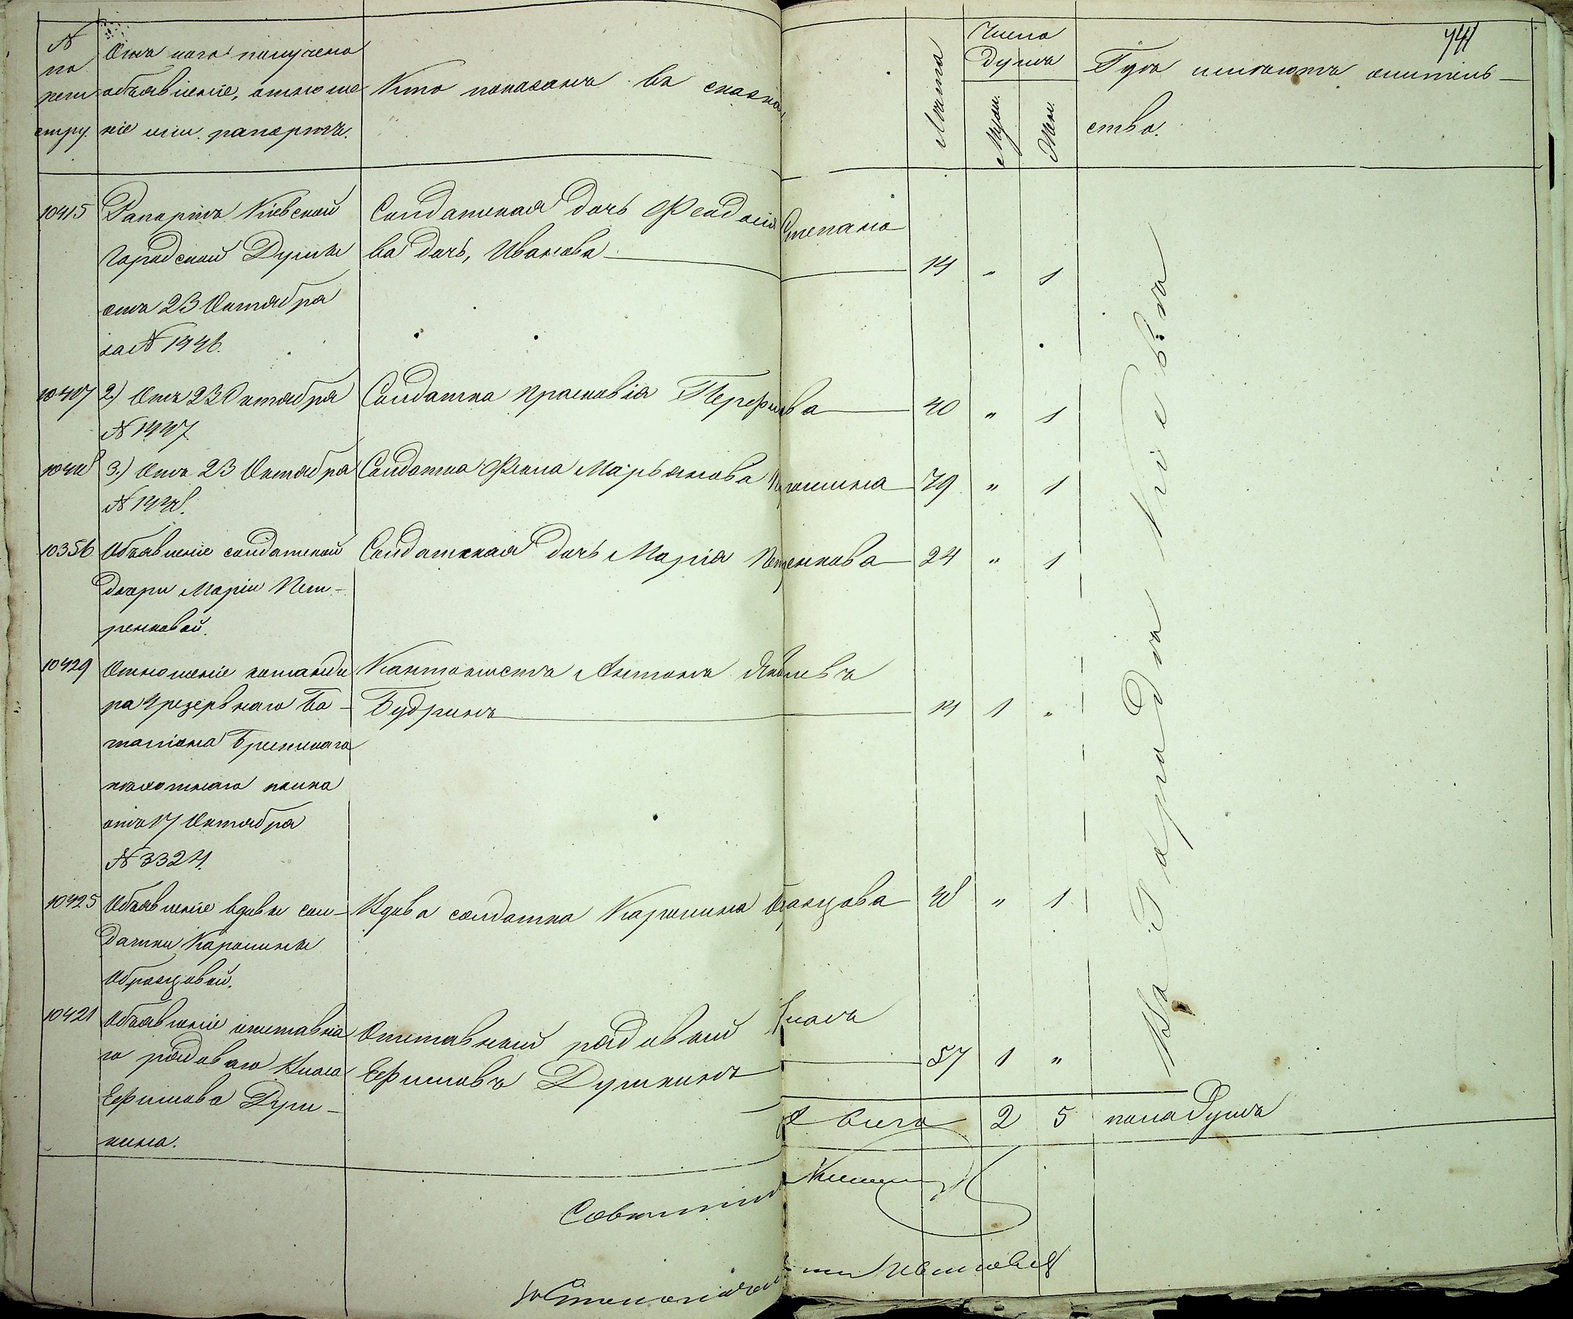 741
№ по регистру.
Отъ кого получено объявленіе, отношеніе или рапортъ.
Кто показанъ въ сказкѣ,
Лѣта
Число душъ
Муж.
Жен.
Гдѣ имѣютъ жительство.
10415
Рапортъ Кіевской
Городской Думы
отъ 23 Октября
за № 1446.
Солдатская дочь Феодосія Степано
ва дочь, Иванова
14 " 1
10407
2) Отъ 23 Октября
№ 1447
Солдатка Прасковія
40 " 1
3) Отъ 23 Октября
№ 1448.
Солдатка Фекла Марьянова
79 " 1
10356
Объявленіе солдатской
дочери Маріи Пет-
ренковой.
Солдатская дочь Марія Петренкова
24 " 1
10429
Отношеніе команди
ра 4 резервнаго Ба-
таліона Брянскаго
пѣхотнаго полка
отъ 17 Октября
№ 3324.
Кантонистъ Антонъ Яковлевъ
Будринъ
14 1 "
10425
Объявленіе вдовы сол-
датки Каролины
Образцовой.
Вдова солдатка Каролина Образцова
48 " 1
10421
Объявленіе отставна
го рядоваго Власа
Ефимова Душ-
кина.
Отставный рядовый Власъ
Ефимовъ Душкинъ
57 1 "
Въ Городѣ Кіевѣ
Всего 2 5 пола душъ